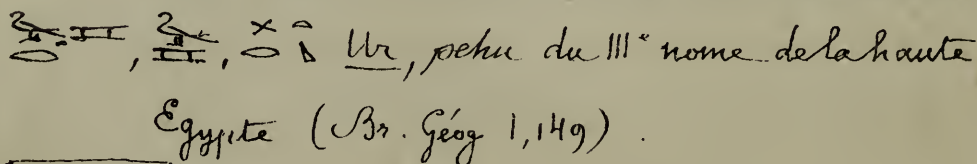 Ur, pehu du III° nome de la haute
Egypte (Br. Géog 1,149).